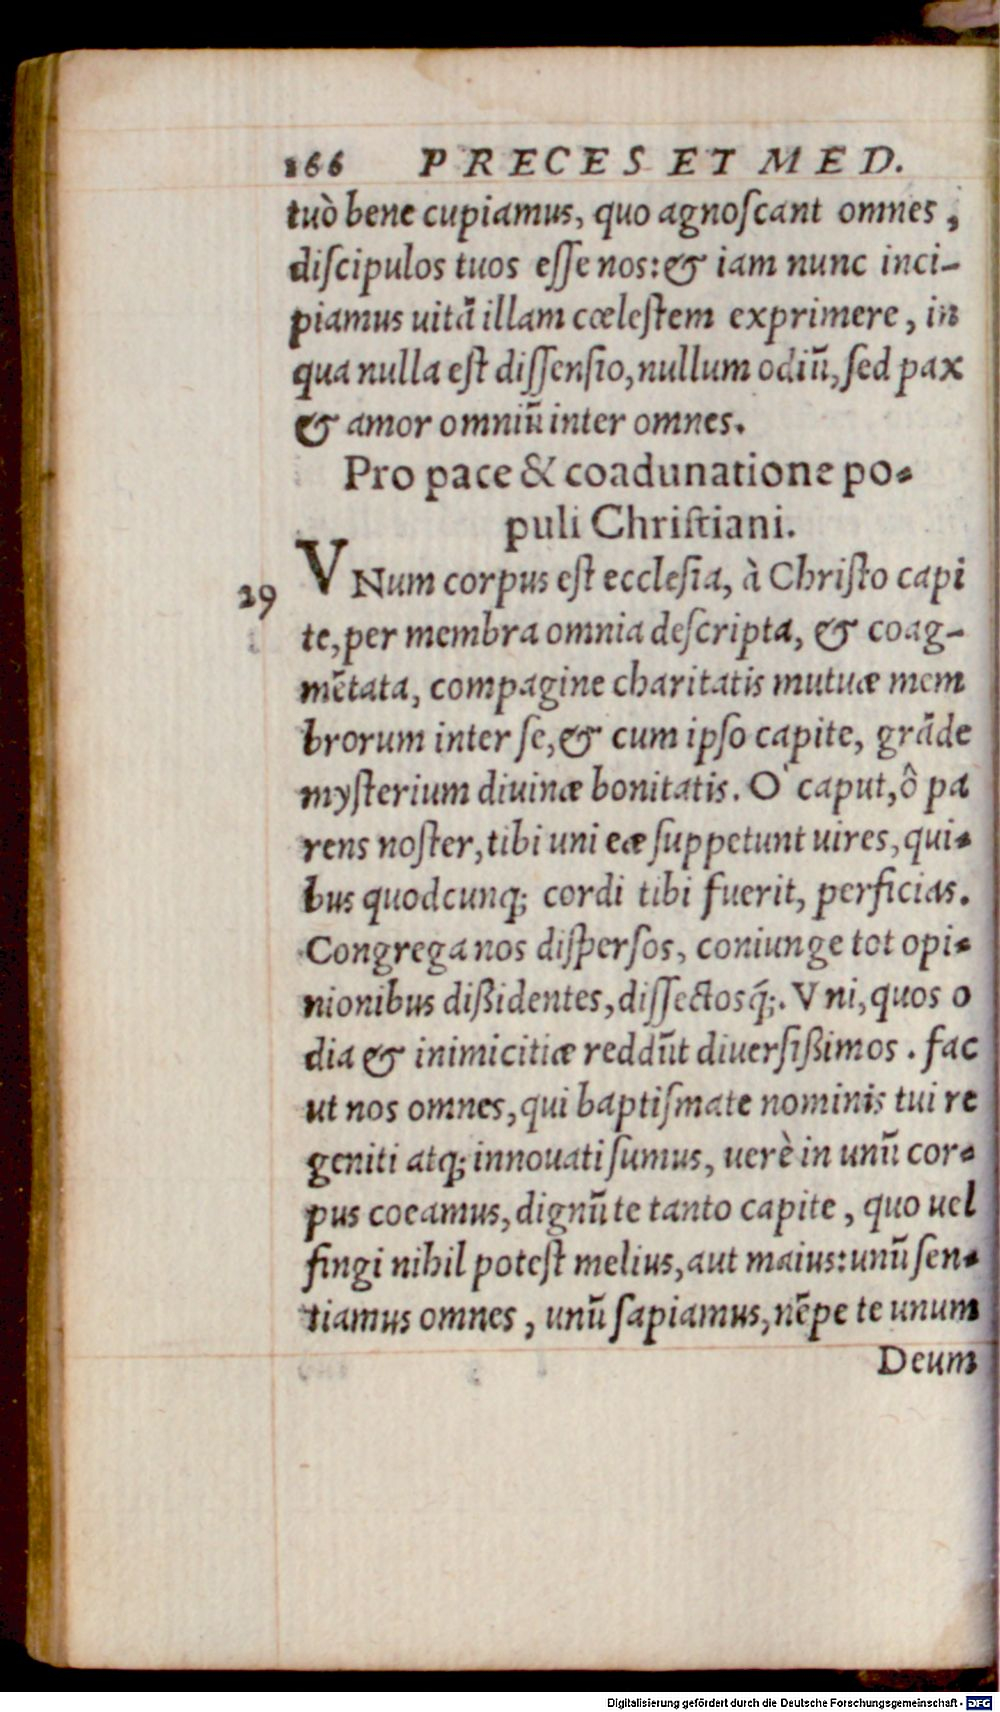 166 PRECES ET MED.
tuò bene cupiamus, quo agnoſcant omnes,
diſcipulos tuos eſſe nos: & iam nunc inci-
piamus uitã illam cœleſtem exprimere, in
qua nulla eſt diſſenſio, nullum odiũ, ſed pax
& amor omniũ inter omnes.
Pro pace & coadunatione po-
puli Chriſtiani.
29 VNum corpus eſt eccleſia, à Chriſto capi
te, per membra omnia deſcripta, & coag-
mẽtata, compagine charitatis mutuæ mem
brorum inter ſe, & cum ipſo capite, grãde
myſterium diuinæ bonitatis. O` caput, ô pa
rens noſter, tibi uni eæ ſuppetunt uires, qui-
bus quodcunq; cordi tibi fuerit, perficias.
Congrega nos diſperſos, coniunge tot opi-
nionibus dißidentes, diſſectosq́;. Vni, quos o
dia & inimicitiæ reddũt diuerſißimos. fac
ut nos omnes, qui baptiſmate nominis tui re
geniti atq; innouati ſumus, uerè in unũ cor-
pus coeamus, dignũ te tanto capite, quo uel
fingi nihil poteſt melius, aut maius: unũ ſen-
tiamus omnes, unũ ſapiamus, nẽpe te unum
Deum
Digitalisierung gefördert durch die Deutsche Forschungsgemeinschaft - DFG